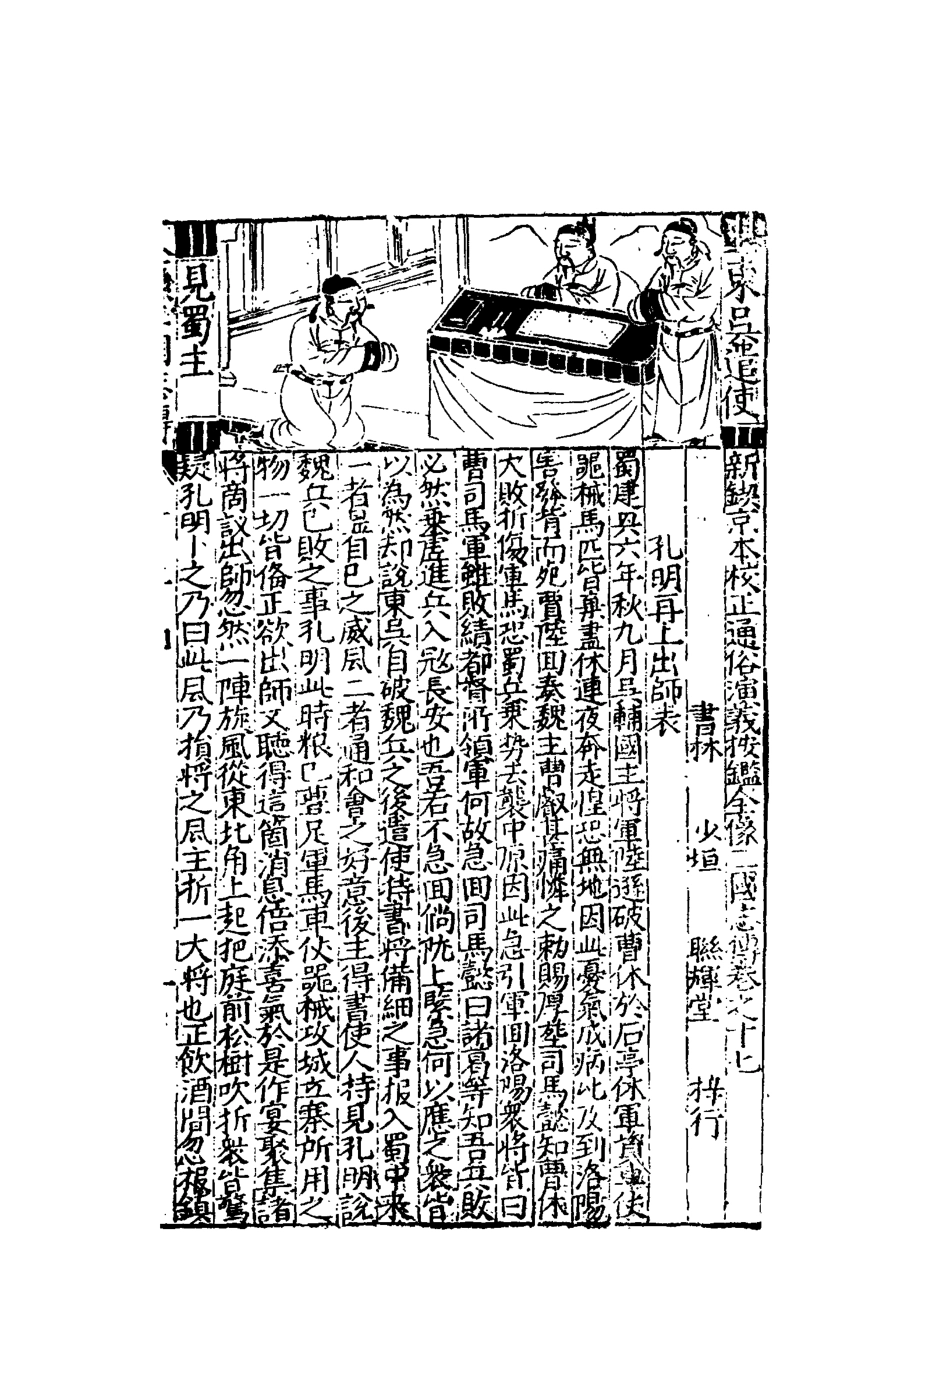 東吳遣使
見蜀主
新鍥京本校正通俗演義按鑑全像三國志傳卷之十七
書林 少垣 聯輝堂 梓行
孔明再上出師表
蜀建興六年秋九月吳輔國主將軍陸遜破曹休於石亭休軍資車仗
噐械馬匹皆棄盡休連夜奔走惶恐無地因此憂氣成病比及到洛陽
害發背而死賈陸回奏魏主曹叡甚痛憐之勅賜厚塟司馬懿知曹休
大敗折傷軍馬恐蜀兵乗势去襲中原因此急引軍回洛陽衆將皆曰
曹司馬軍雖敗績都督所領軍何故急回司馬懿曰諸葛等知吾兵敗
必然乗虛進兵入冦長安也吾若不急回倘陇上緊急何以應之衆皆
以為然却說東吳自破魏兵之後遣使持書將備細之事报入蜀中来
一者显自己之威風二者通和會之好意後主得書使人持見孔明說
魏兵已敗之事孔明此時粮已豐足軍馬車仗噐械攻城立寨所用之
物一切皆俻正欲出師又聽得這箇消息倍添喜氣於是作宴聚集諸
將商议出師忽然一陣旋風從東北角上起把庭前松樹吹折衆皆驚
疑孔明卜之乃曰此風乃損將之風主折一大將也正飲酒間忽报鎮